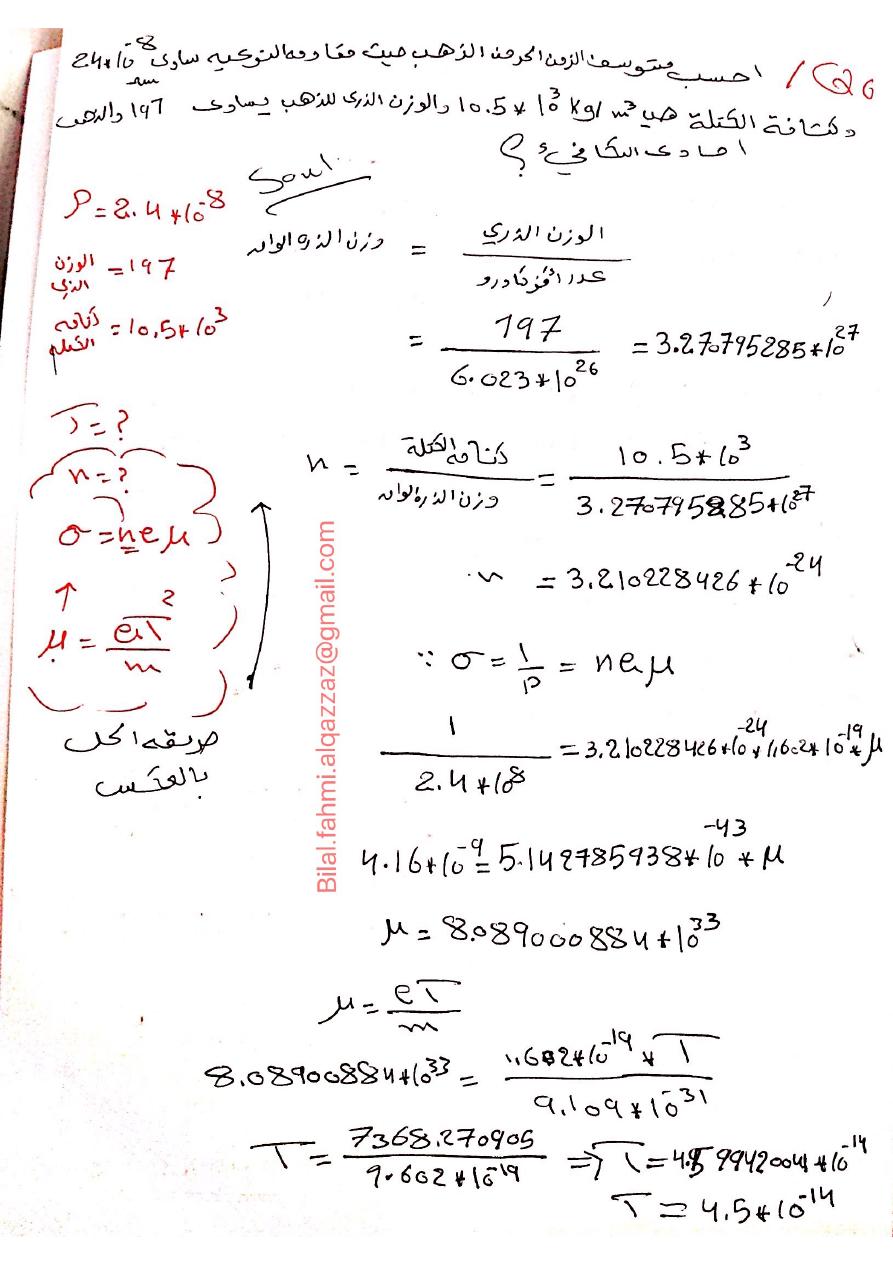 Q6 / احسب متوسط الزمن الحر من الذهب حيث مقاومه النوعيه ساوى 2.4*10^-8
وكثافة الكتلة هي 10.5 * 10^3 kg/m^3 والوزن الذري للذهب يساوى 197 والذهب
احادى التكافيء ؟
Soul:
ρ = 2.4*10^-8
الوزن الذري = 197
كثافه الكتله = 10.5*10^3
T = ?
n = ?
σ = neμ
μ = eT / m
2
طريقه الحل
بالعكس
وزن الذره الواحده = الوزن الذري / عدد افوكادرو
= 197 / 6.023*10^26 = 3.270795285*10^27
n = كثافه الكتلة / وزن الذرة الواحده = 10.5*10^3 / 3.270795285*10^27
n = 3.210228426*10^-24
∵ σ = 1/ρ = neμ
1 / 2.4*10^8 = 3.210228426*10^-24 * 1.602*10^-19 * μ
4.16*10^-9 = 5.142785938*10^-43 * μ
μ = 8.089000884*10^33
μ = eT / m
8.08900884*10^33 = 1.602*10^-19 * T / 9.109*10^-31
T = 7368.270905 / 9.602*10^-19 ⇒ T = 4.599420041*10^-14
T = 4.5*10^-14
Bilal.fahmi.alqazzaz@gmail.com